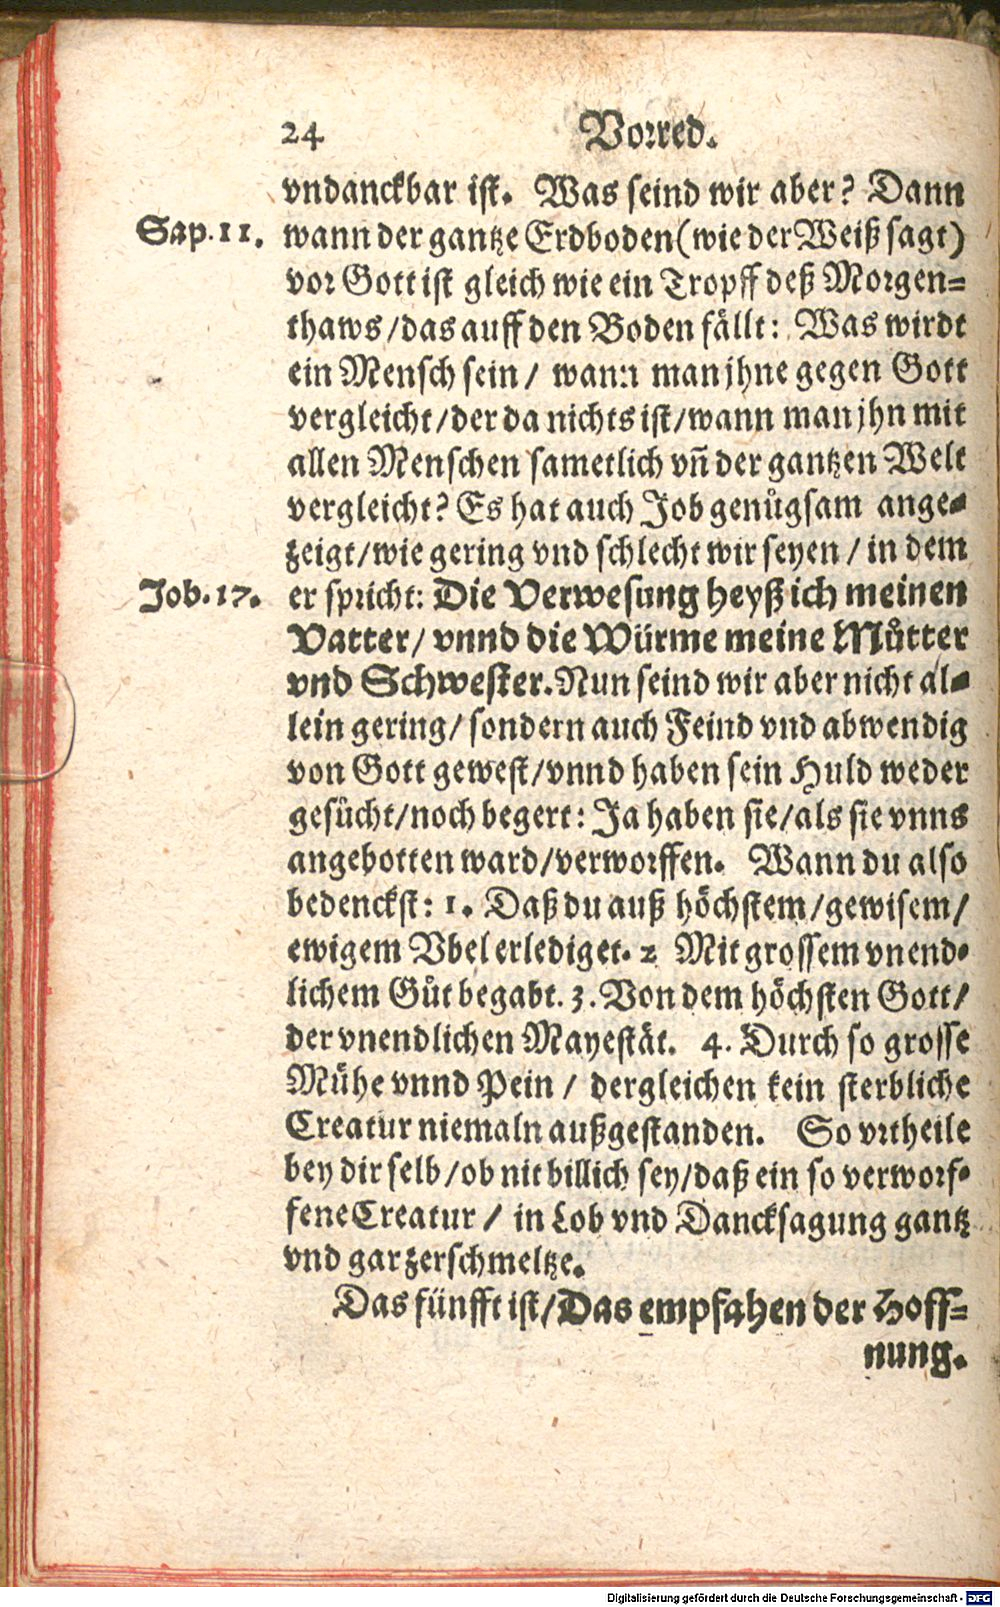 24 Vorred.
vndanckbar ist. Was seind wir aber? Dann
Sap. 11. wann der gantze Erdboden (wie der Weiß sagt)
vor Gott ist gleich wie ein Tropff deß Morgen=
thaws/das auff den Boden fällt: Was wirdt
ein Mensch sein/ wann man jhne gegen Gott
vergleicht/der da nichts ist/wann man jhn mit
allen Menschen sametlich vñ der gantzen Welt
vergleicht? Es hat auch Job genůgsam ange=
zeigt/wie gering vnd schlecht wir seyen/ in dem
Job. 17. er spricht: Die Verwesung heyß ich meinen
Vatter/ vnnd die Würme meine Můtter
vnd Schwester. Nun seind wir aber nicht al=
lein gering/ sondern auch Feind vnd abwendig
von Gott gewest/vnnd haben sein Huld weder
gesůcht/noch begert: Ja haben sie/als sie vnns
angebotten ward/verworffen. Wann du also
bedenckst: 1. Daß du auß höchstem/gewisem/
ewigem Vbel erlediget. 2 Mit grossem vnend=
lichem Gůt begabt. 3. Von dem höchsten Gott/
der vnendlichen Mayestät. 4. Durch so grosse
Mühe vnnd Pein/ dergleichen kein sterbliche
Creatur niemaln außgestanden. So vrtheile
bey dir selb/ob nit billich sey/daß ein so verworf=
fene Creatur/ in Lob vnd Dancksagung gantz
vnd gar zerschmeltze.
Das fünfft ist/Das empfahen der Hoff=
nung.
Digitalisierung gefördert durch die Deutsche Forschungsgemeinschaft - DFG